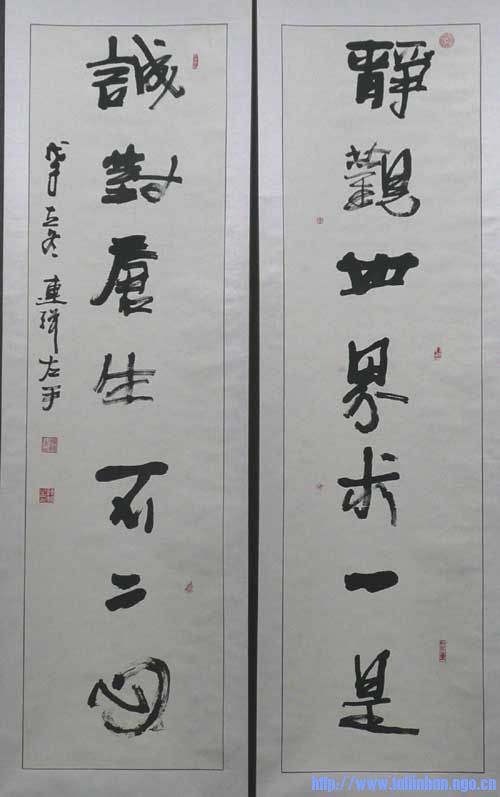 靜觀世界求一是
誠對蒼生不二心
戊子立冬 連左手
http://www.taliinhan.ngo.cn